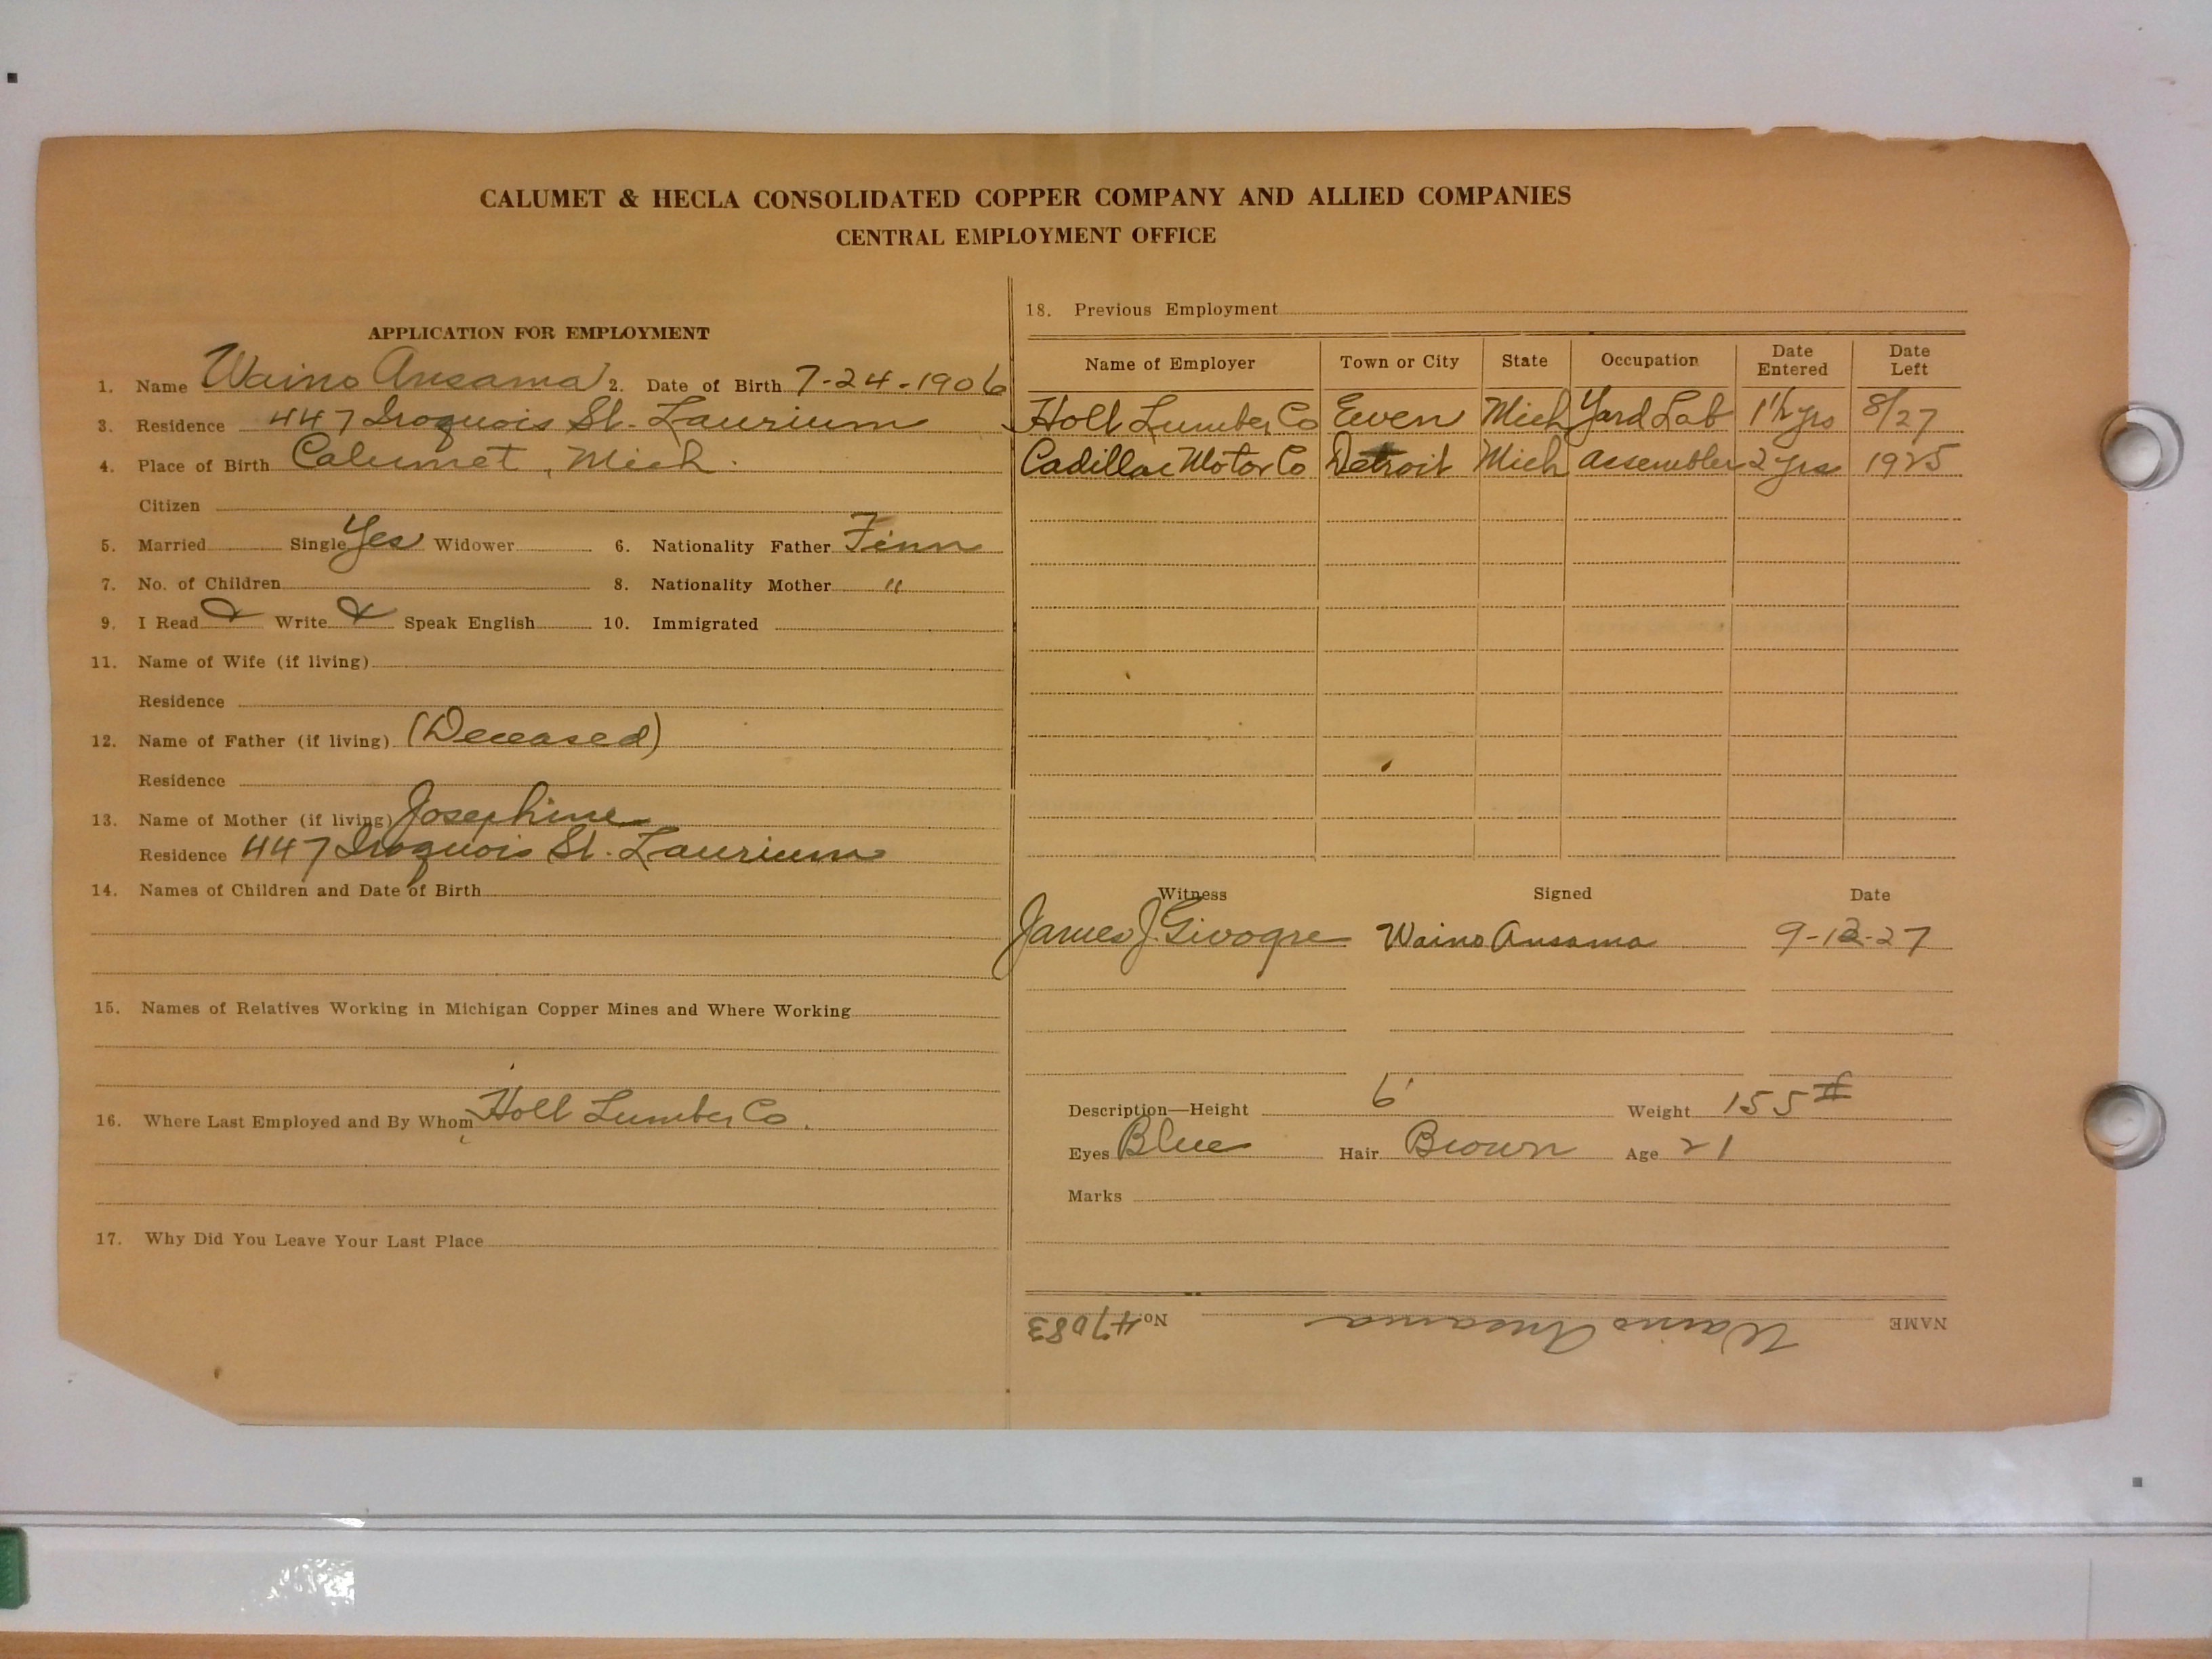 CALUMET & HECLA CONSOLIDATED COPPER COMPANY AND ALLIED COMPANIES
CENTRAL EMPLOYMENT OFFICE
APPLICATION FOR EMPLOYMENT
1. Name Waino Ansama 2. Date of Birth 7-24-1906
3. Residence 447 Iroquois St. Laurium
4. Place of Birth Calumet, Mich.
Citizen
5. Married Single Yes Widower 6. Nationality Father Finn
7. No. of Children 8. Nationality Mother "
9. I Read & Write & Speak English 10. Immigrated
11. Name of Wife (if living)
Residence
12. Name of Father (if living) (Deceased)
Residence
13. Name of Mother (if living) Josephine
Residence 447 Iroquois St. Laurium
14. Names of Children and Date of Birth
15. Names of Relatives Working in Michigan Copper Mines and Where Working
16. Where Last Employed and By Whom Holt Lumber Co.
17. Why Did You Leave Your Last Place
18. Previous Employment
Name of Employer Town or City State Occupation Date Entered Date Left
Holt Lumber Co Ewen Mich Yard Lab 1½ yrs 8/27
Cadillac Motor Co Detroit Mich Assembler 2 yrs 1925
Witness Signed Date
James J. Waino Ansama 9-12-27
Description—Height 6' Weight 155#
Eyes Blue Hair Brown Age 21
Marks
NAME Waino Ansama No. 47083